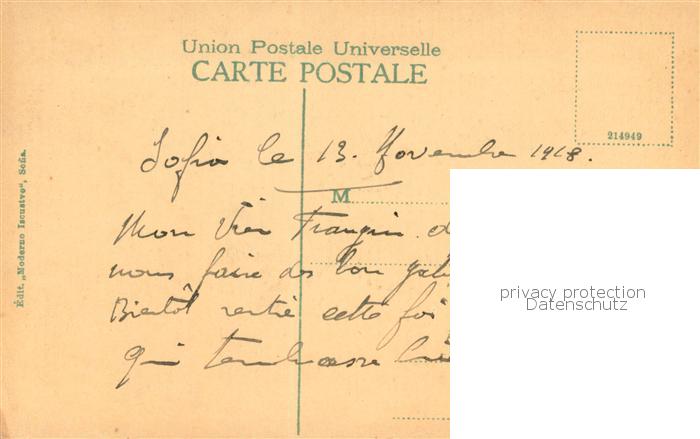 Union Postale Universelle
CARTE POSTALE
214949
Édit. „Moderno Iscustvo“, Sofia.
Sofia le 13. Novembre 1918.
M
Mon Vieu Frangin d
nous faire des bon
Bientôt rentré cette foi
qui tembrasse
privacy protection
Datenschutz